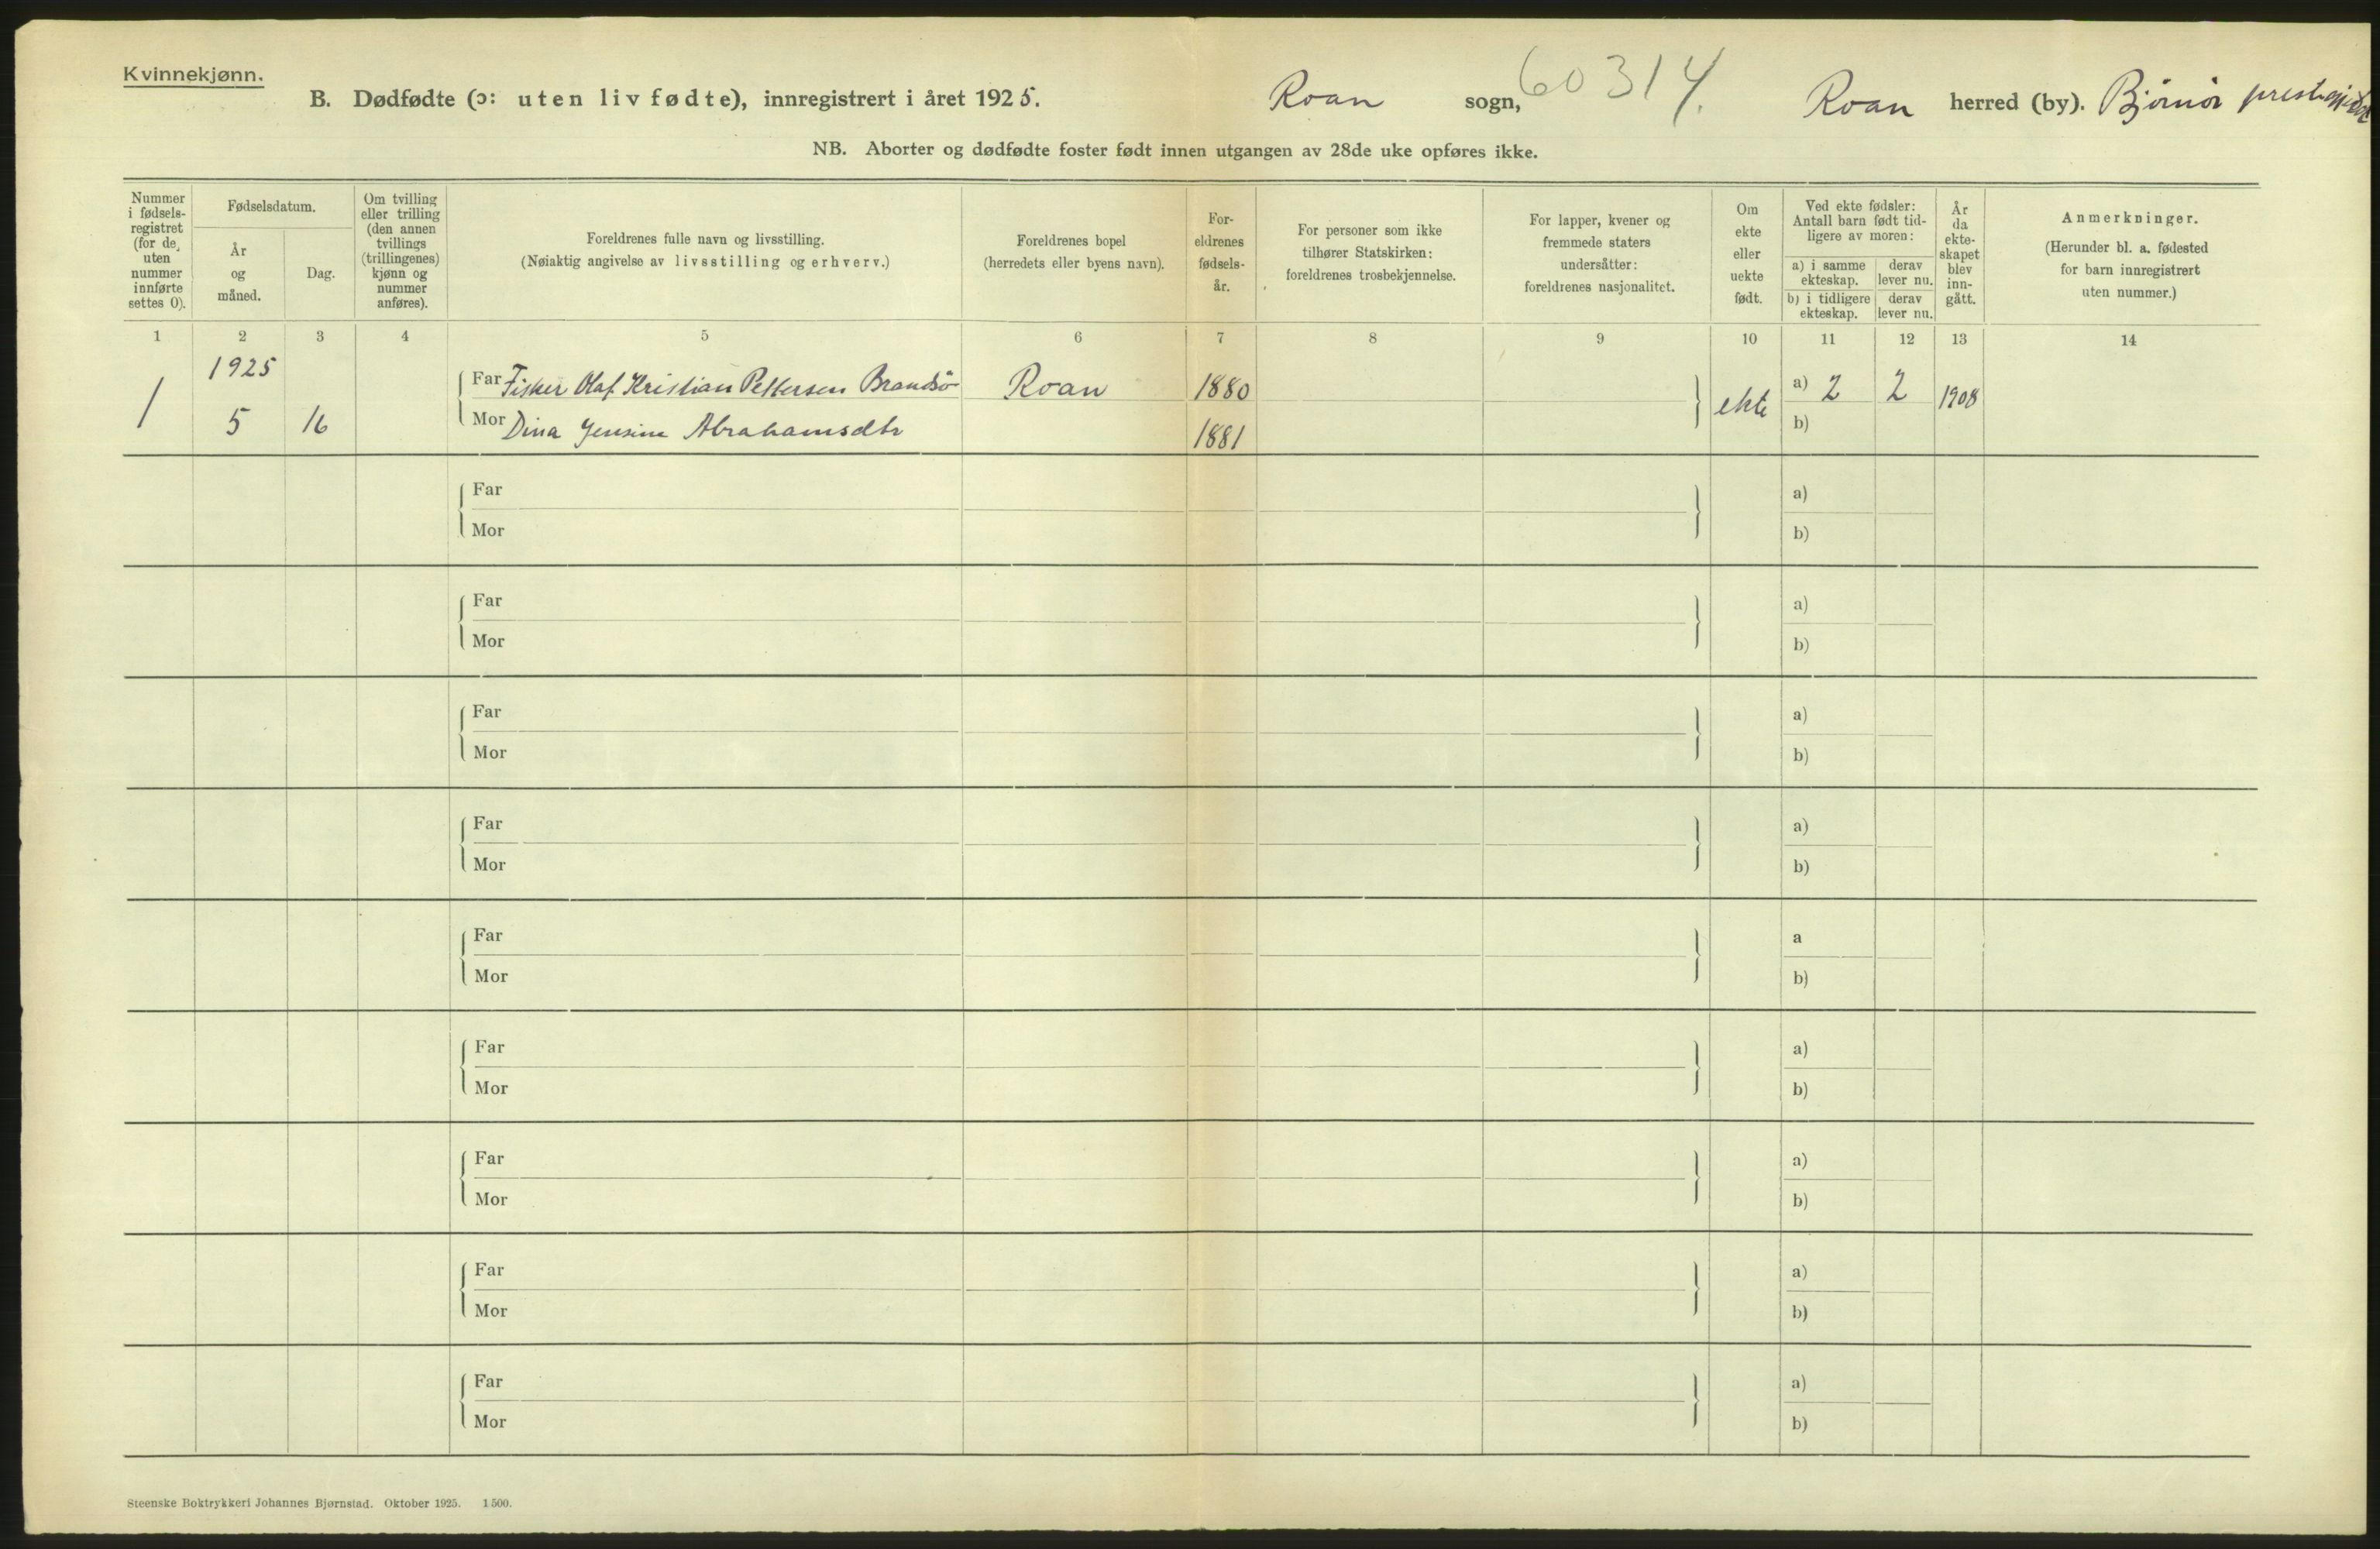 Kvinnekjønn.
60314.
B. Dødfødte (ɔ: uten liv fødte), innregistrert i året 1925. Roan sogn, Roan herred (by). Bjørnør prestegjeld
NB. Aborter og dødfødte foster født innen utgangen av 28de uke opføres ikke.
Nummer
i fødsels-
registret
(for de
uten
nummer
innførte
settes 0).
Fødselsdatum.
År
og
måned.
Dag.
Om tvilling
eller trilling
(den annen
tvillings
(trillingenes)
kjønn og
nummer
anføres).
Foreldrenes fulle navn og livsstilling.
(Nøiaktig angivelse av livsstilling og erhverv.)
Foreldrenes bopel
(herredets eller byens navn).
For-
eldrenes
fødsels-
år.
For personer som ikke
tilhører Statskirken:
foreldrenes trosbekjennelse.
For lapper, kvener og
fremmede staters
undersåtter:
foreldrenes nasjonalitet.
Om
ekte
eller
uekte
født.
Ved ekte fødsler:
Antall barn født tid-
ligere av moren:
a) i samme
ekteskap.
derav
lever nu.
b) i tidligere
ekteskap.
derav
lever nu.
År
da
ekte-
skapet
blev
inn-
gått.
Anmerkninger.
(Herunder bl. a. fødested
for barn innregistrert
uten nummer.)
1 2 3 4 5 6 7 8 9 10 11 12 13 14
1925
Far Fisker Olaf Kristian Pettersen Brandsö Roan 1880 a) 2 2
1 5 16 ekte 1908
Mor Dina Jensine Abrahamsdtr 1881 b)
Far a)
Mor b)
Far a)
Mor b)
Far a)
Mor b)
Far a)
Mor b)
Far a
Mor b)
Far a)
Mor b)
Far a)
Mor b)
Far a)
Mor b)
Far a)
Mor b)
Steenske Boktrykkeri Johannes Bjørnstad. Oktober 1925. 1500.